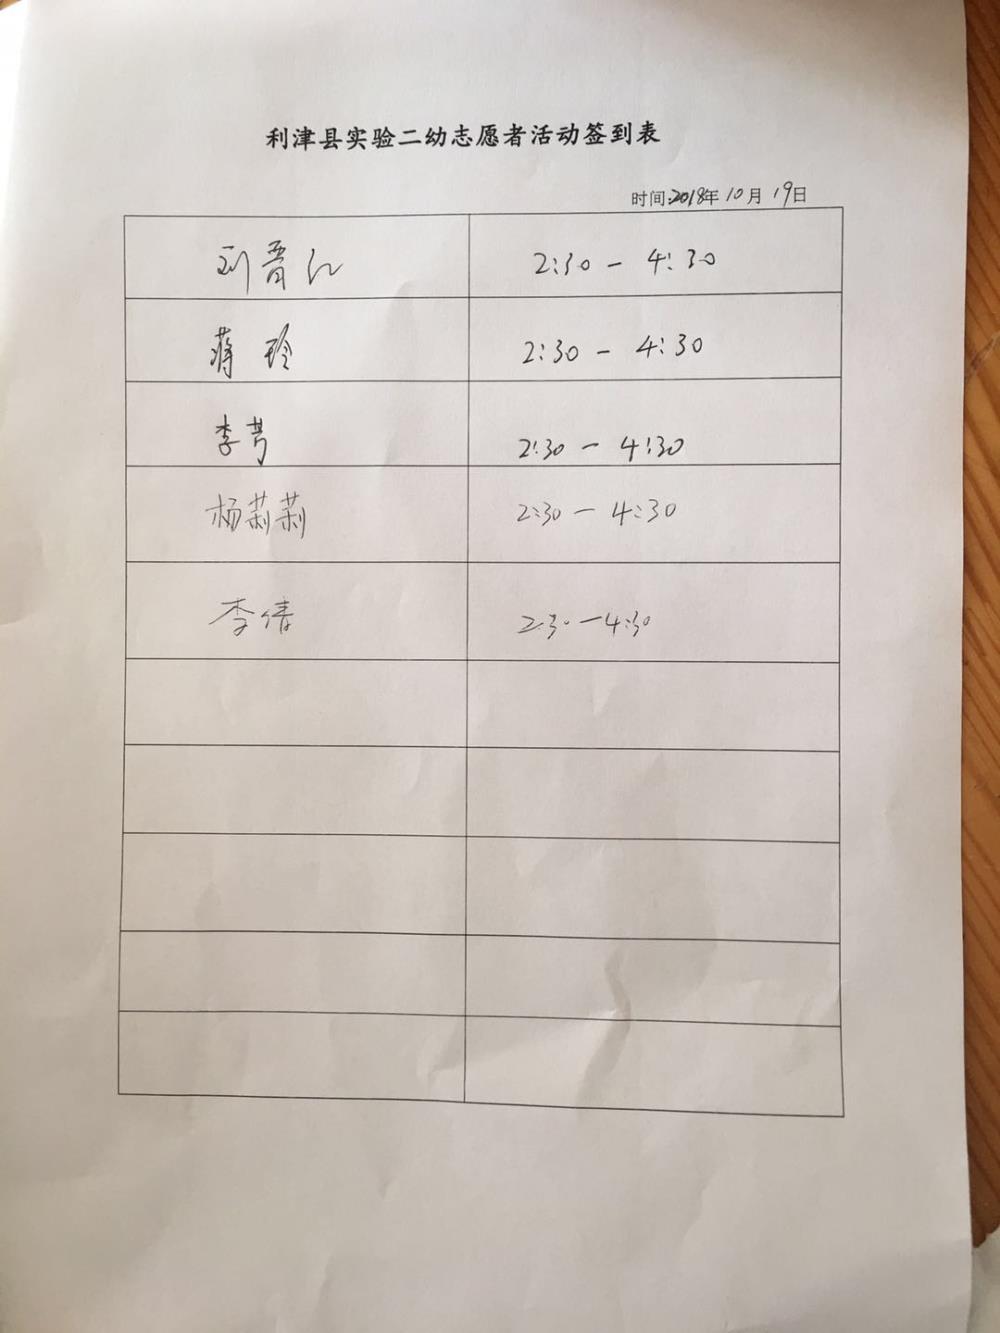 利津县实验二幼志愿者活动签到表
时间:2018年10月19日
2:30 — 4:30
蒋玲 2:30 — 4:30
李芳 2:30 — 4:30
杨莉莉 2:30 — 4:30
李倩 2:30 — 4:30